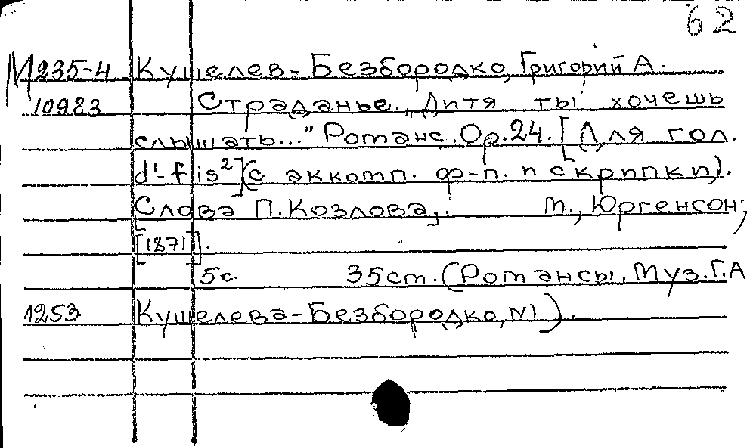 62
М 235-4 Кушелев-Безбородко, Григорий А.
10983 Страданье. „Дитя ты хочешь
слышать..." Романс. Ор. 24. [Для гол.
d'-fis²] (с аккомп. ф-п. и скрипки).
Слова П. Козлова. М., Юргенсон,
[1871].
5с. 35см. (Романсы. Муз. Г.А
1253 Кушелева-Безбородко, №1).